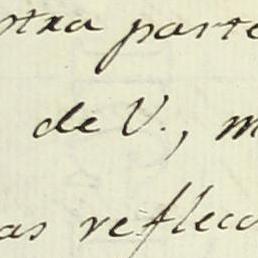 stra parte
de V., m
as reflecc